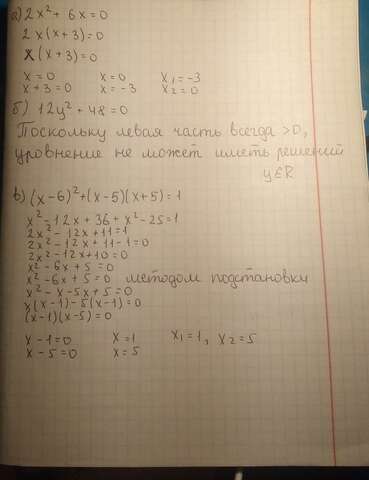 а) 2x² + 6x = 0
2x(x+3) = 0
x(x+3) = 0
x = 0 x = 0 x₁ = -3
x + 3 = 0 x = -3 x₂ = 0
б) 12y² + 48 = 0
Поскольку левая часть всегда > 0,
уровнение не может иметь решений
y∈R
в) (x-6)² + (x-5)(x+5) = 1
x² - 12x + 36 + x² - 25 = 1
2x² - 12x + 11 = 1
2x² - 12x + 11 - 1 = 0
2x² - 12x + 10 = 0
x² - 6x + 5 = 0
x² - 6x + 5 = 0 методом подстановки
x² - x - 5x + 5 = 0
x(x-1) - 5(x-1) = 0
(x-1)(x-5) = 0
x - 1 = 0 x = 1 x₁ = 1, x₂ = 5
x - 5 = 0 x = 5